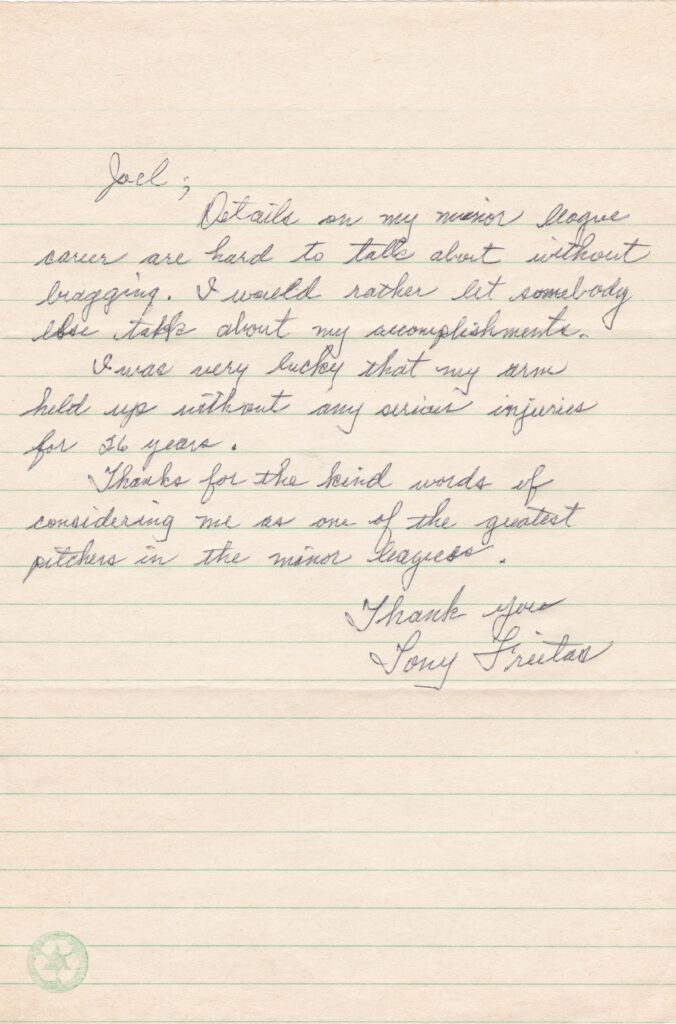 Joel ;
Details on my minor league
career are hard to talk about without
bragging. I would rather let somebody
else talk about my accomplishments.
I was very lucky that my arm
held up without any serious injuries
for 26 years.
Thanks for the kind words of
considering me as one of the greatest
pitchers in the minor leagues.
Thank you
Tony Freitas